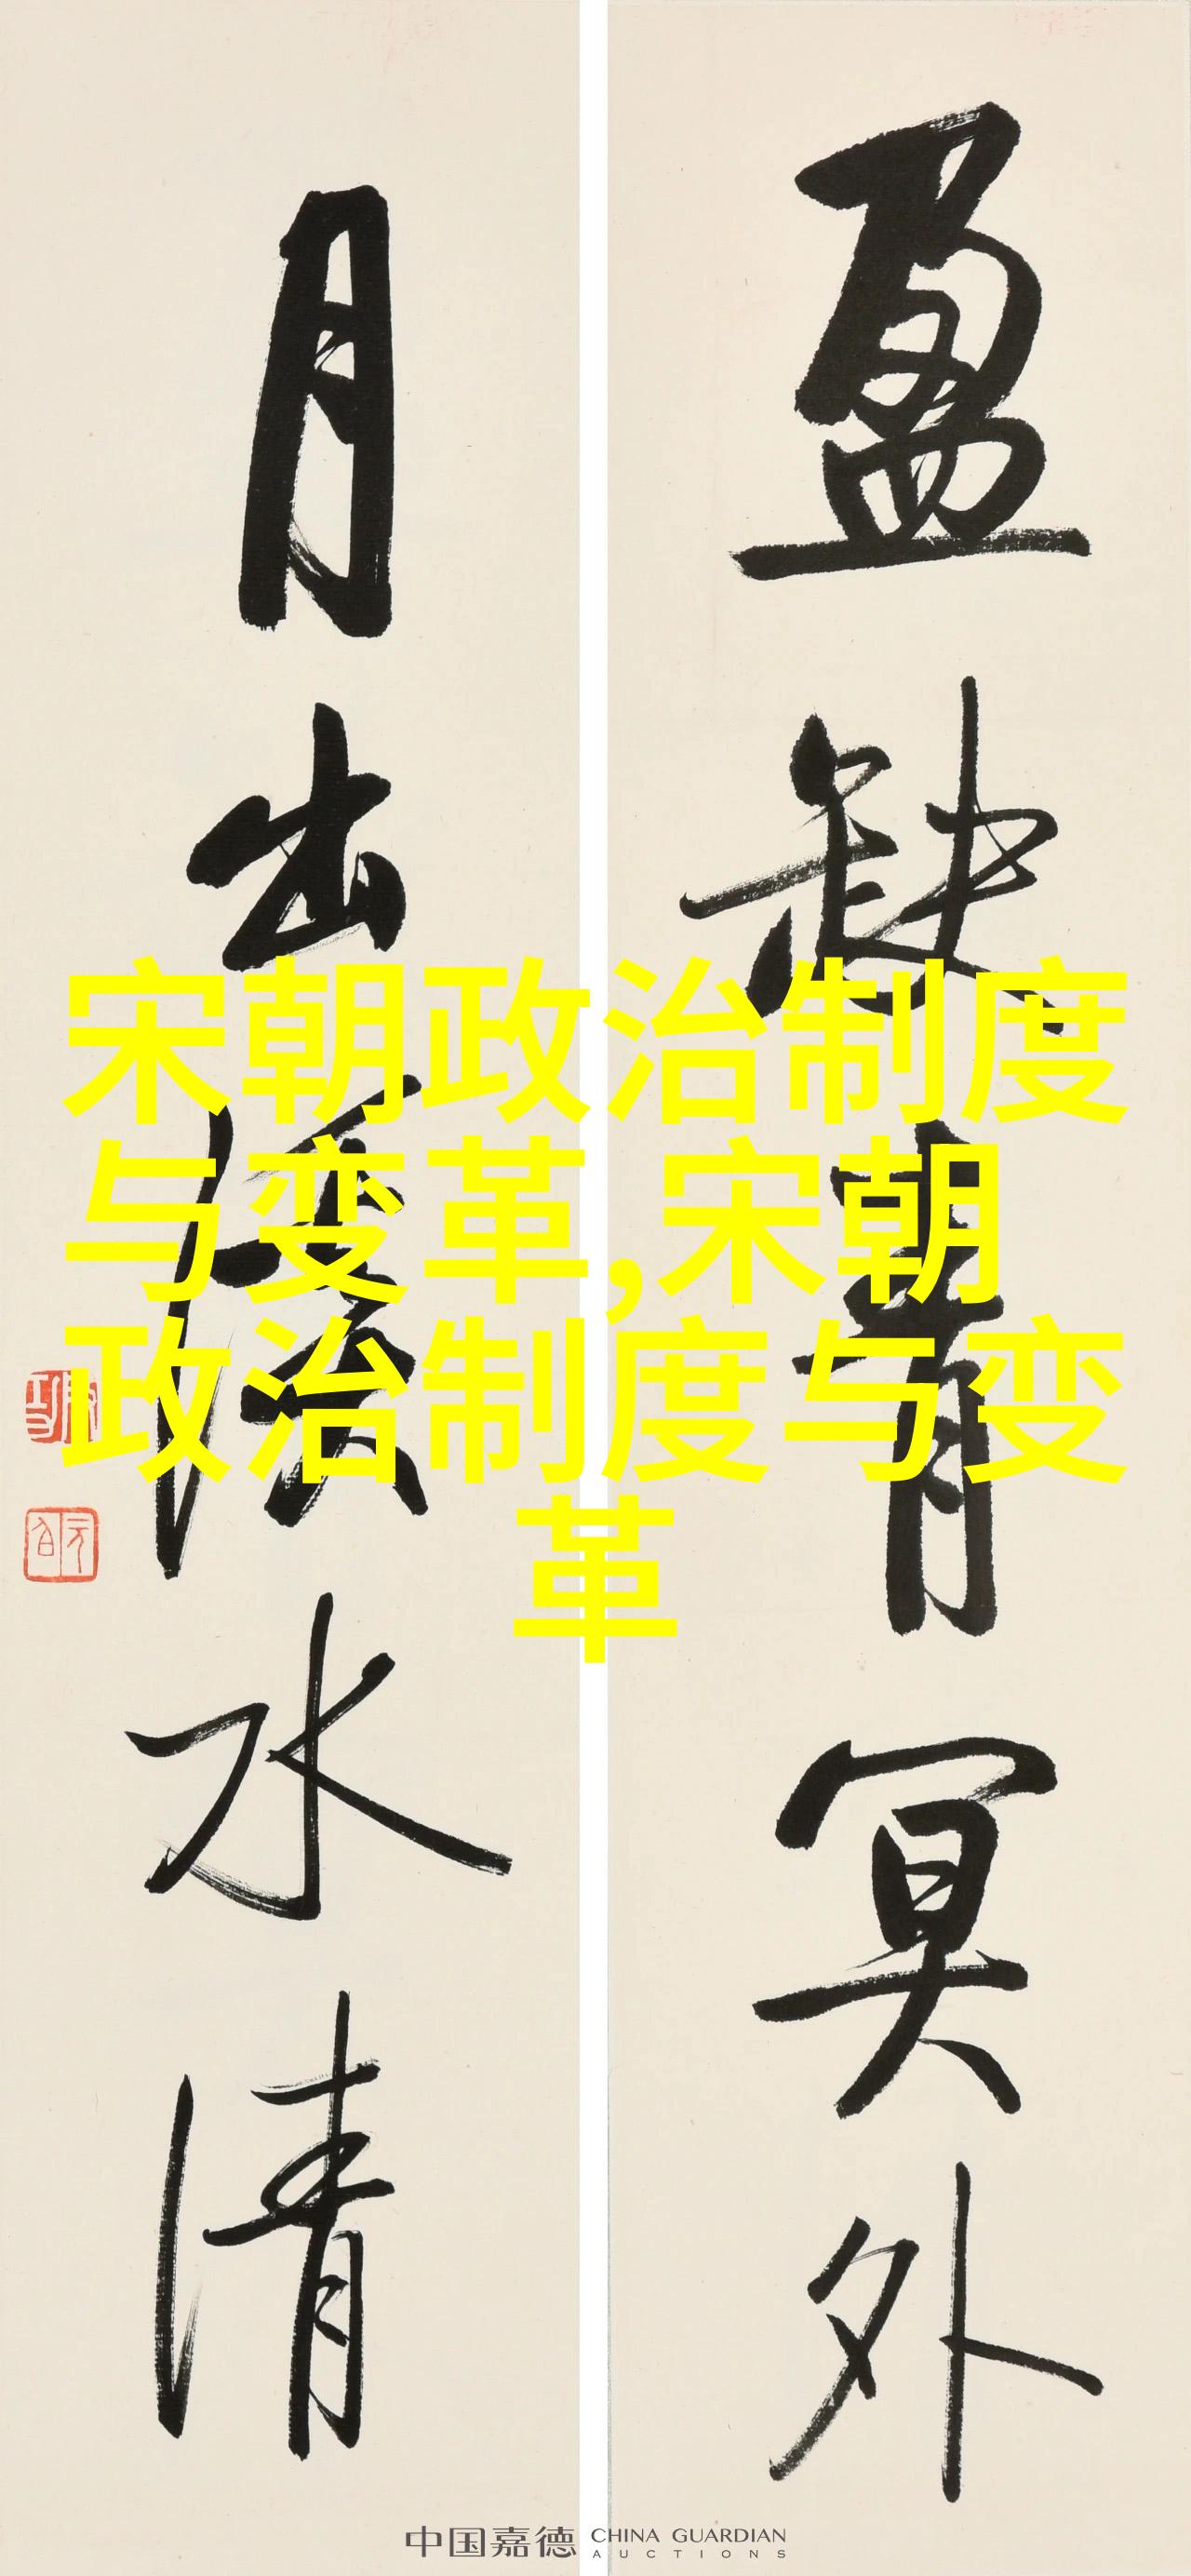 盈缺青冥外
月出浮水清
宋朝政治制度
与变革,宋朝
政治制度与变
革
中国嘉德 CHINA GUARDIAN
AUCTIONS